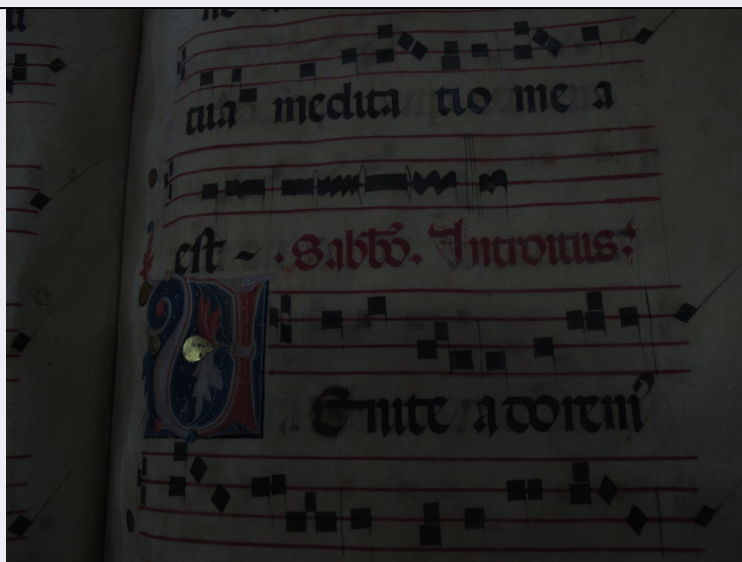 tua medita tio me a
est ~ · Sabbō. Introitus:
VEnite adorem̄